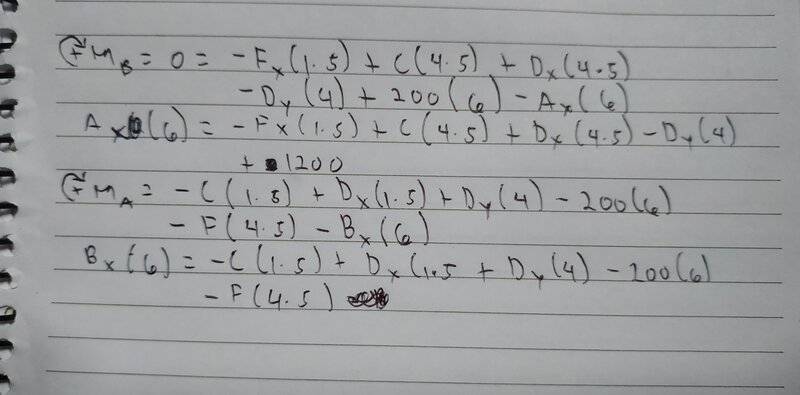 ↶+ M_B = 0 = -F_x(1.5) + C(4.5) + D_x(4.5)
- D_y(4) + 200(6) - A_x(6)
A_x(6) = -F_x(1.5) + C(4.5) + D_x(4.5) - D_y(4)
+ 1200
↶+ M_A = -C(1.5) + D_x(1.5) + D_y(4) - 200(6)
- F(4.5) - B_x(6)
B_x(6) = -C(1.5) + D_x(1.5 + D_y(4) - 200(6)
- F(4.5)